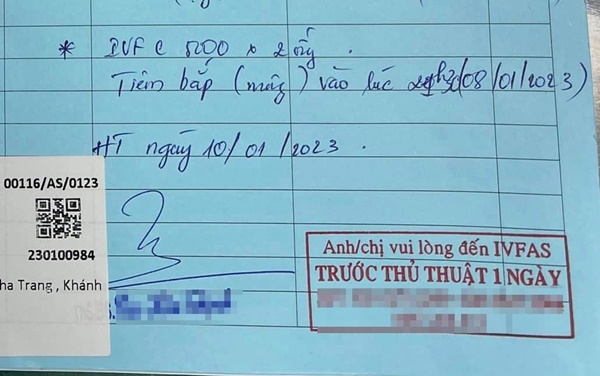 * IVF C 5000 x 2 ống.
Tiêm bắp (mông) vào lúc (08/01/2023)
HT ngày 10/01/2023.
00116/AS/0123
230100984
ha Trang , Khánh
Anh/chị vui lòng đến IVFAS
TRƯỚC THỦ THUẬT 1 NGÀY